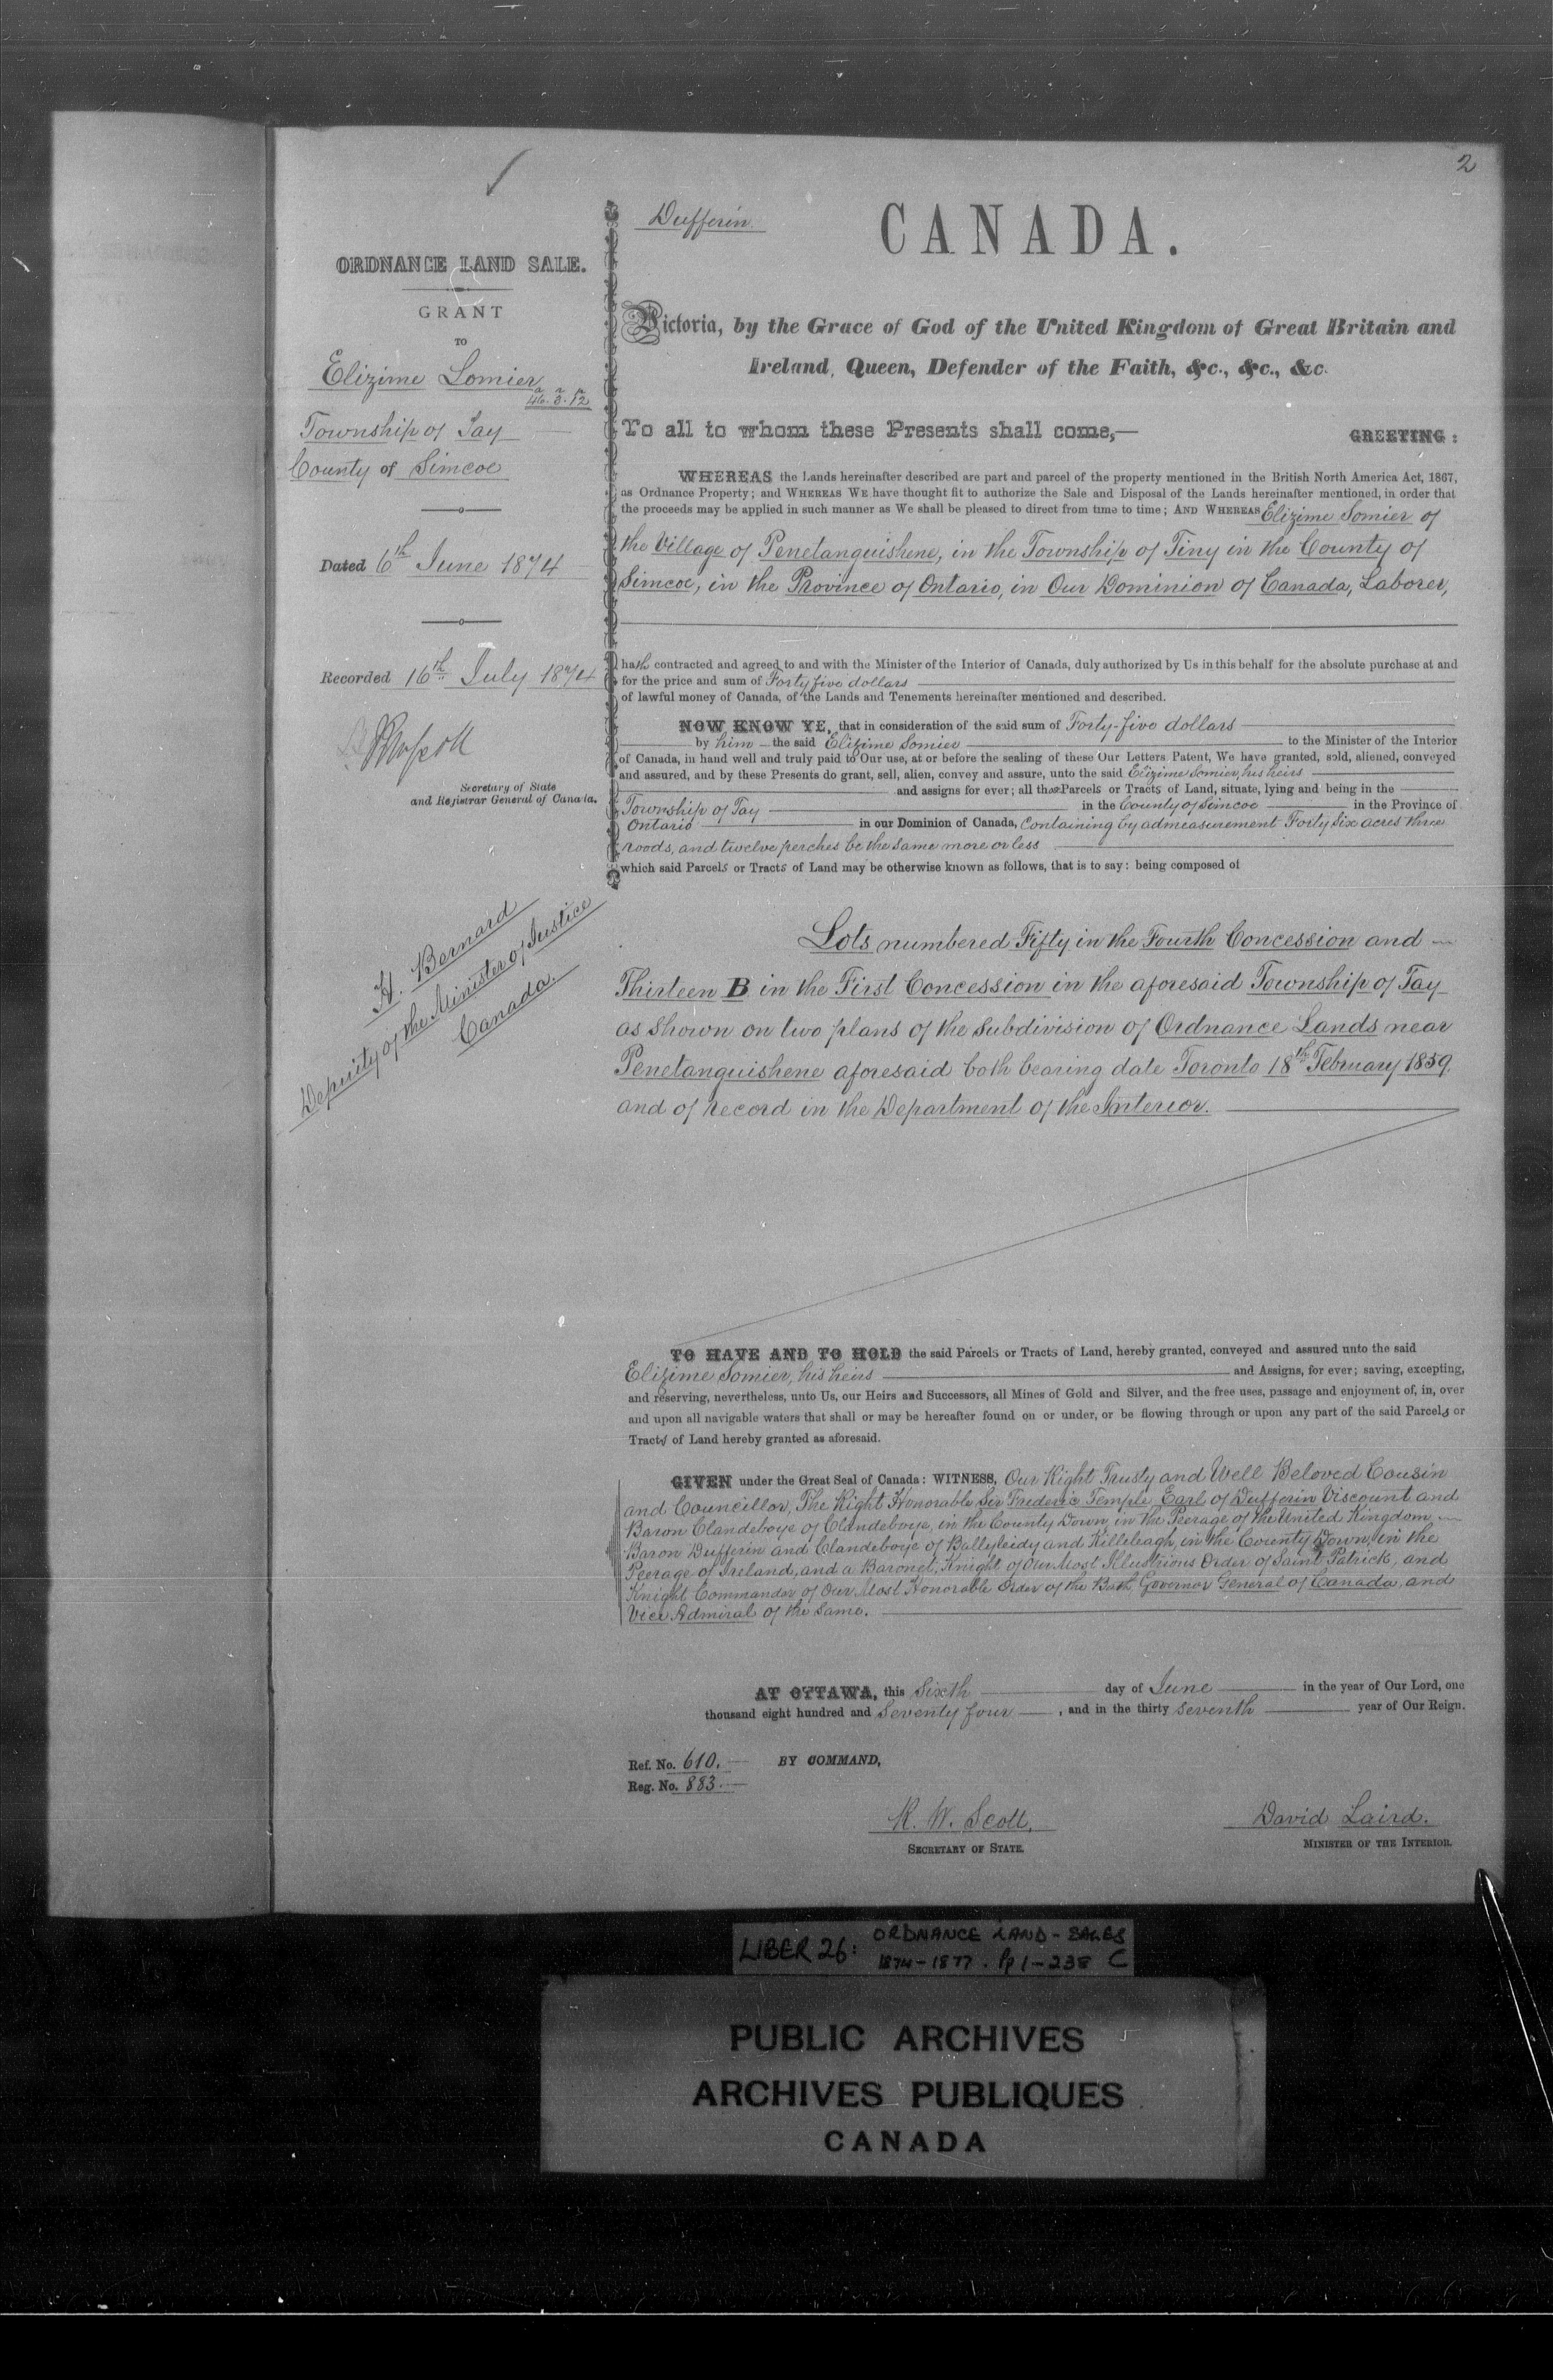 2
ORDNANCE LAND SALE.
GRANT
TO
Elizime Somier
46. 3. 12
Township of Tay
County of Simcoe
Dated 6th June 1874
Recorded 16th July 1874
Secretary of State
and Registrar General of Canada.
H. Bernard
Deputy of the Minister of Justice
Canada.
Dufferin
CANADA.
Victoria, by the Grace of God of the United Kingdom of Great Britain and
Ireland, Queen, Defender of the Faith, &c., &c., &c.
To all to whom these Presents shall come,—
GREETING:
WHEREAS the Lands hereinafter described are part and parcel of the property mentioned in the British North America Act, 1867,
as Ordnance Property; and WHEREAS WE have thought fit to authorize the Sale and Disposal of the Lands hereinafter mentioned, in order that
the proceeds may be applied in such manner as We shall be pleased to direct from time to time; AND WHEREAS Elizime Somier of
the Village of Penetanguishene, in the Township of Tiny in the County of
Simcoe, in the Province of Ontario, in Our Dominion of Canada, Laborer,
hath contracted and agreed to and with the Minister of the Interior of Canada, duly authorized by Us in this behalf for the absolute purchase at and
for the price and sum of Forty five dollars
of lawful money of Canada, of the Lands and Tenements hereinafter mentioned and described.
NOW KNOW YE, that in consideration of the said sum of Forty-five dollars
by him the said Elizime Somier to the Minister of the Interior
of Canada, in hand well and truly paid to Our use, at or before the sealing of these Our Letters Patent, We have granted, sold, aliened, conveyed
and assured, and by these Presents do grant, sell, alien, convey and assure, unto the said Elizime Somier, his heirs
and assigns for ever; all those Parcels or Tracts of Land, situate, lying and being in the
Township of Tay in the County of Simcoe in the Province of
Ontario in our Dominion of Canada, Containing by admeasurement Forty Six acres three
roods, and twelve perches be the same more or less
which said Parcels or Tracts of Land may be otherwise known as follows, that is to say: being composed of
Lots numbered Fifty in the Fourth Concession and
Thirteen B in the First Concession in the aforesaid Township of Tay
as shown on two plans of the Subdivision of Ordnance Lands near
Penetanguishene aforesaid both bearing date Toronto 18th February 1859.
and of record in the Department of the Interior.
TO HAVE AND TO HOLD the said Parcels or Tracts of Land, hereby granted, conveyed and assured unto the said
Elizime Somier, his heirs and Assigns, for ever; saving, excepting,
and reserving, nevertheless, unto Us, our Heirs and Successors, all Mines of Gold and Silver, and the free uses, passage and enjoyment of, in, over
and upon all navigable waters that shall or may be hereafter found on or under, or be flowing through or upon any part of the said Parcels or
Tracts of Land hereby granted as aforesaid.
GIVEN under the Great Seal of Canada: WITNESS, Our Right Trusty and Well Beloved Cousin
and Councillor, The Right Honorable Sir Frederic Temple, Earl of Dufferin Viscount and
Baron Clandeboye of Clandeboye, in the County Down, in the Peerage of the United Kingdom
Baron Dufferin and Clandeboye of Ballyleidy and Killeleagh, in the County Down, in the
Peerage of Ireland, and a Baronet, Knight of Our Most Illustrious Order of Saint Patrick, and
Knight Commander of Our Most Honorable Order of the Bath, Governor General of Canada, and
Vice Admiral of the Same.
AT OTTAWA, this Sixth day of June in the year of Our Lord, one
thousand eight hundred and Seventy four, and in the thirty seventh year of Our Reign.
Ref. No. 610. BY COMMAND,
Reg. No. 883.
R. W. Scott, David Laird.
SECRETARY OF STATE. MINISTER OF THE INTERIOR.
LIBER 26: ORDNANCE LAND-SALES
1874-1877. Pp 1-238 C
PUBLIC ARCHIVES
ARCHIVES PUBLIQUES
CANADA